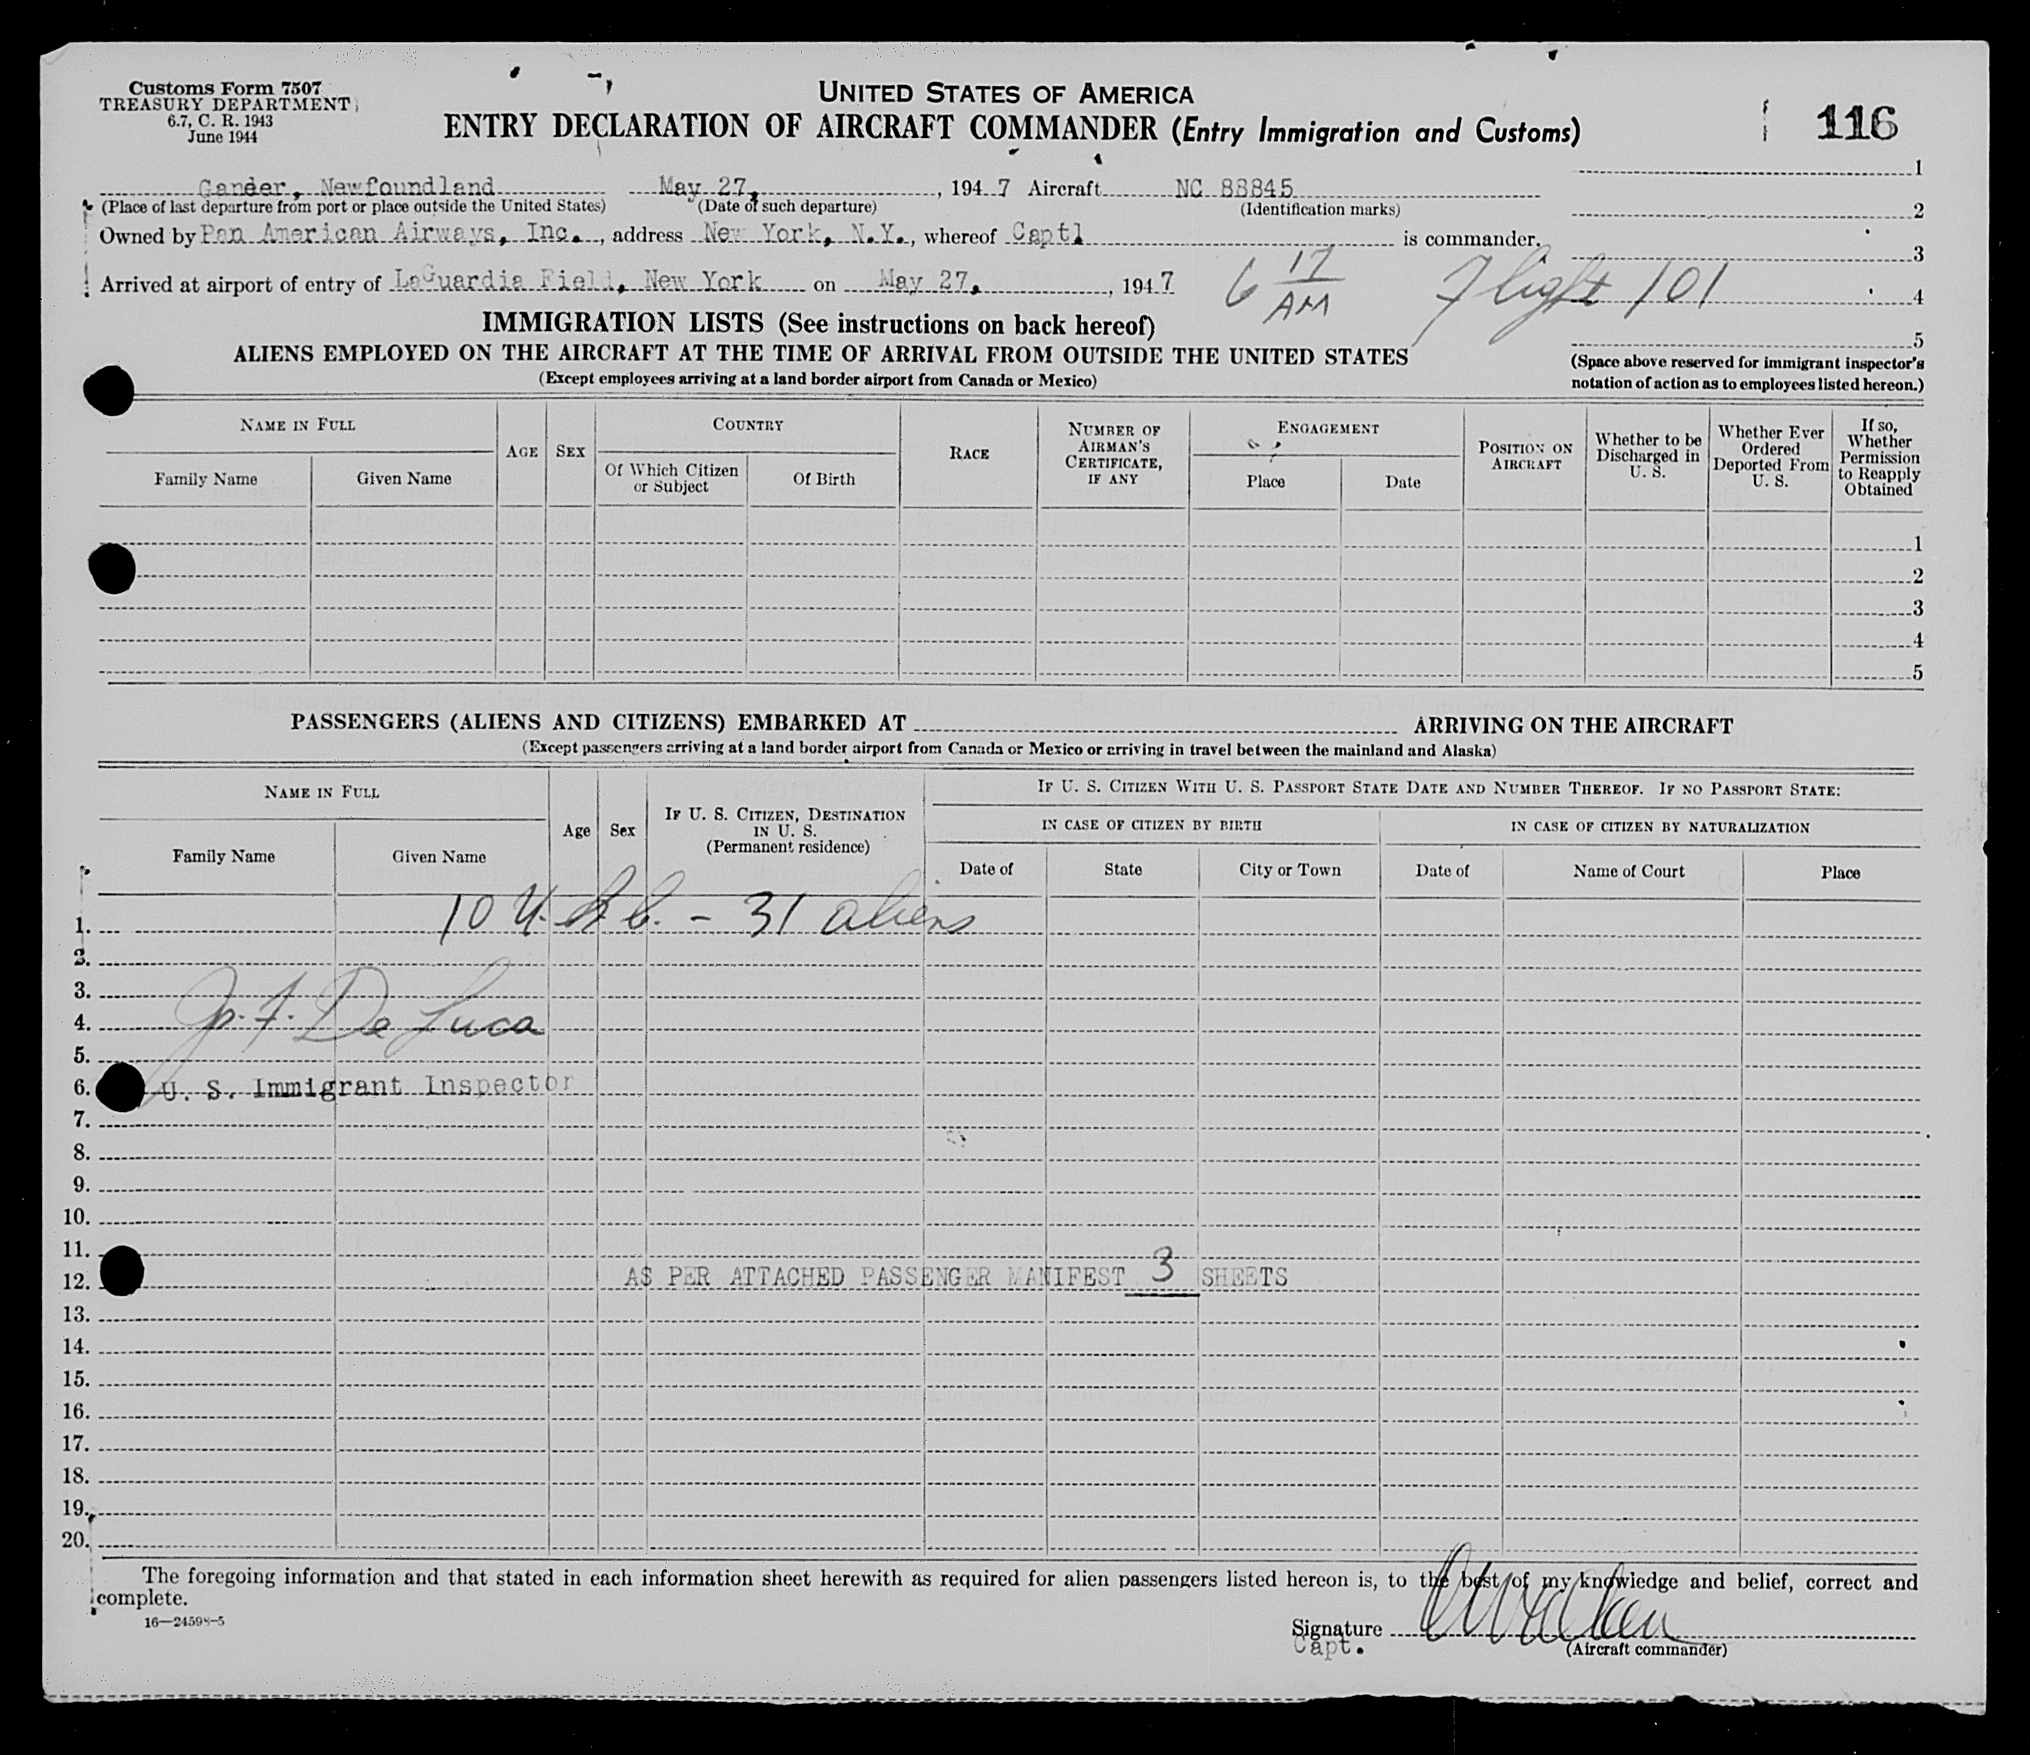 Customs Form 7507
TREASURY DEPARTMENT
6.7, C. R. 1943
June 1944
UNITED STATES OF AMERICA
ENTRY DECLARATION OF AIRCRAFT COMMANDER (Entry Immigration and Customs)
116
Gander, Newfoundland May 27, , 1947 Aircraft NC 88845
(Place of last departure from port or place outside the United States) (Date of such departure) (Identification marks)
Owned by Pan American Airways, Inc. , address New York, N.Y. , whereof Captl is commander.
Arrived at airport of entry of LaGuardia Field, New York on May 27, , 1947 6 17 AM Flight 101
1
2
3
4
5
(Space above reserved for immigrant inspector's
notation of action as to employees listed hereon.)
IMMIGRATION LISTS (See instructions on back hereof)
ALIENS EMPLOYED ON THE AIRCRAFT AT THE TIME OF ARRIVAL FROM OUTSIDE THE UNITED STATES
(Except employees arriving at a land border airport from Canada or Mexico)
NAME IN FULL
Family Name Given Name
AGE
SEX
COUNTRY
Of Which Citizen
or Subject
Of Birth
RACE
NUMBER OF
AIRMAN'S
CERTIFICATE,
IF ANY
ENGAGEMENT
Place Date
POSITION ON
AIRCRAFT
Whether to be
Discharged in
U. S.
Whether Ever
Ordered
Deported From
U. S.
If so,
Whether
Permission
to Reapply
Obtained
1
2
3
4
5
PASSENGERS (ALIENS AND CITIZENS) EMBARKED AT ARRIVING ON THE AIRCRAFT
(Except passengers arriving at a land border airport from Canada or Mexico or arriving in travel between the mainland and Alaska)
NAME IN FULL
Family Name Given Name
Age
Sex
IF U. S. CITIZEN, DESTINATION
IN U. S.
(Permanent residence)
IF U. S. CITIZEN WITH U. S. PASSPORT STATE DATE AND NUMBER THEREOF. IF NO PASSPORT STATE:
IN CASE OF CITIZEN BY BIRTH
IN CASE OF CITIZEN BY NATURALIZATION
Date of State City or Town Date of Name of Court Place
1. 10 U.S.C. - 31 aliens
2.
3.
4. J. F. De Luca
5.
6. U. S. Immigrant Inspector
7.
8.
9.
10.
11.
12. AS PER ATTACHED PASSENGER MANIFEST 3 SHEETS
13.
14.
15.
16.
17.
18.
19.
20.
The foregoing information and that stated in each information sheet herewith as required for alien passengers listed hereon is, to the best of my knowledge and belief, correct and
complete.
16—24598-5
Signature
Capt.
(Aircraft commander)